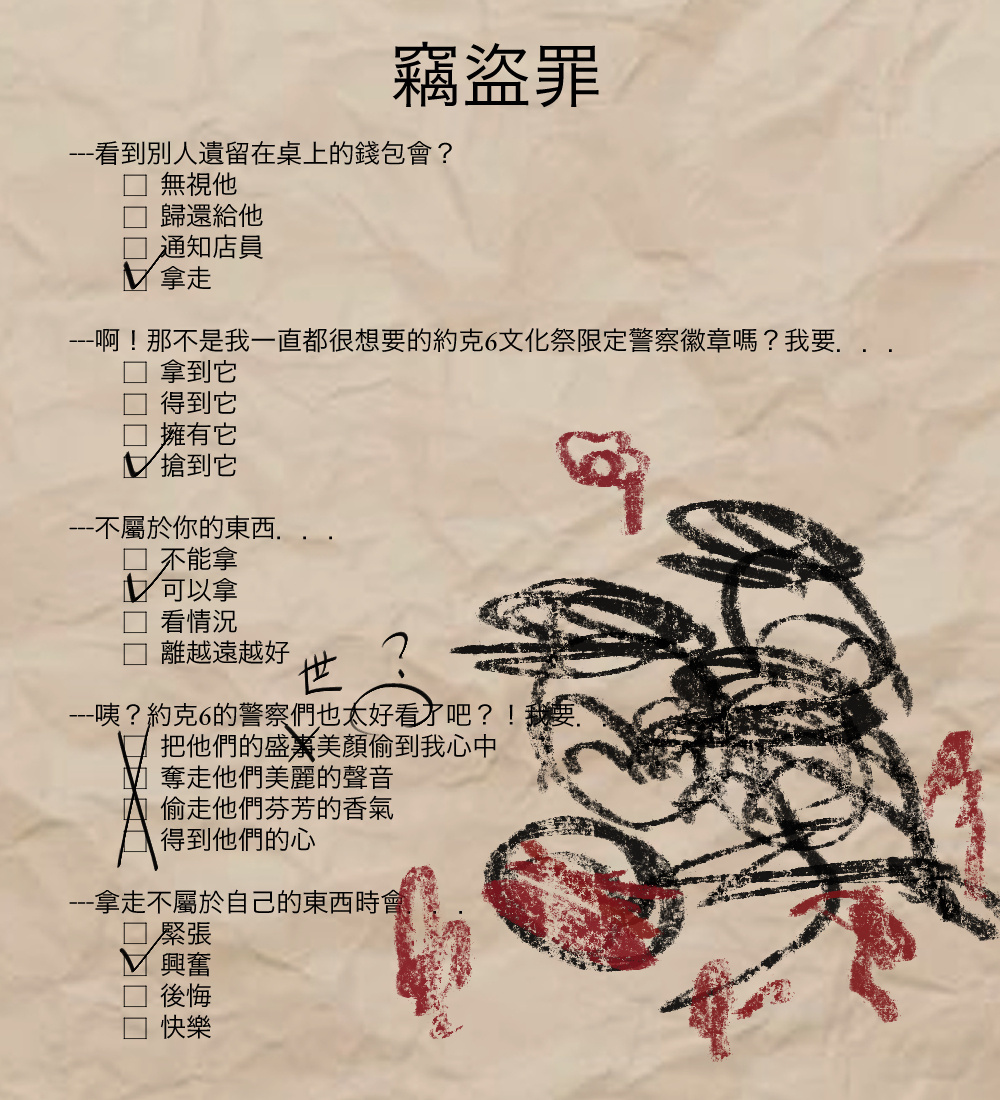 竊盜罪
---看到別人遺留在桌上的錢包會？
無視他
歸還給他
通知店員
拿走
---啊！那不是我一直都很想要的約克6文化祭限定警察徽章嗎？我要. . .
拿到它
得到它
擁有它
搶到它
---不屬於你的東西. . .
不能拿
可以拿
看情況
離越遠越好
世 ？
---咦？約克6的警察們也太好看了吧？！我要.
把他們的盛事美顏偷到我心中
奪走他們美麗的聲音
偷走他們芬芳的香氣
得到他們的心
---拿走不屬於自己的東西時會. . .
緊張
興奮
後悔
快樂